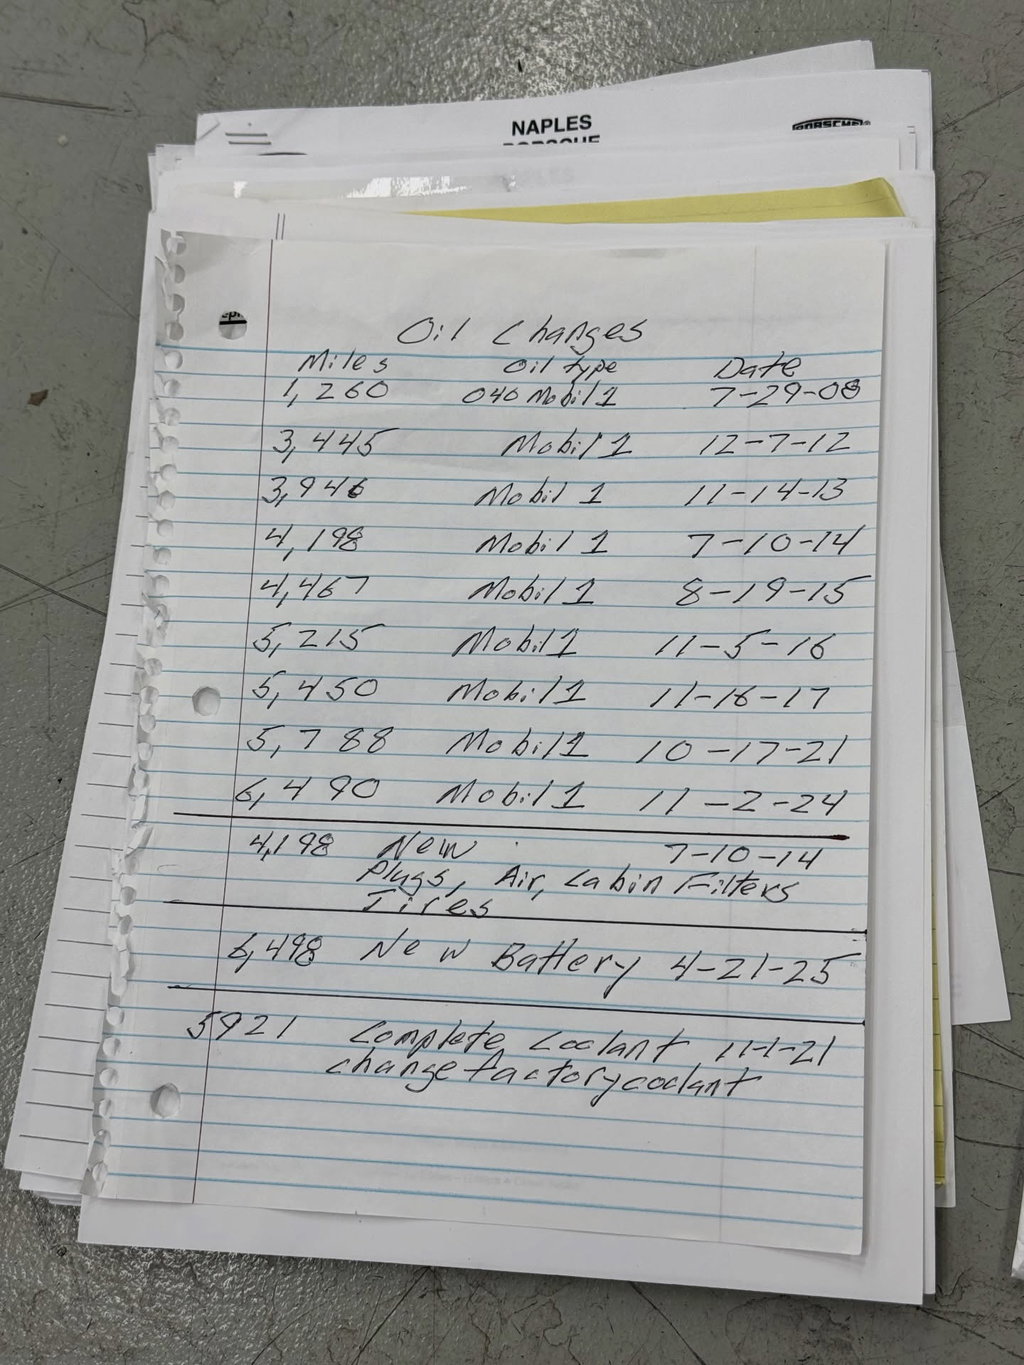 NAPLES
PORSCHE
PORSCHE®
Oil Changes
Miles Oil type Date
1,260 040 Mobil 1 7-29-08
3,445 Mobil 1 12-7-12
3,946 Mobil 1 11-14-13
4,198 Mobil 1 7-10-14
4,467 Mobil 1 8-19-15
5,215 Mobil 1 11-5-16
5,450 Mobil 1 11-16-17
5,788 Mobil 1 10-17-21
6,490 Mobil 1 11-2-24
4,198 New 7-10-14
Plugs, Air, Cabin Filters
Tires
6,498 New Battery 4-21-25
5921 Complete Coolant 11-1-21
change factory coolant